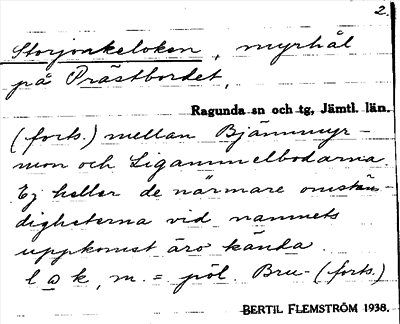 2.
Storjonkeloken, myrhål
på Prästbordet,
Ragunda sn och tg, Jämtl. län.
(forts.) mellan Bjännmyr-
mon och Ligammelbodarna.
Ej heller de närmare omstän-
digheterna vid namnets
uppkomst äro kända.
lok, m. = pöl. Bru- (forts.)
BERTIL FLEMSTRÖM 1938.